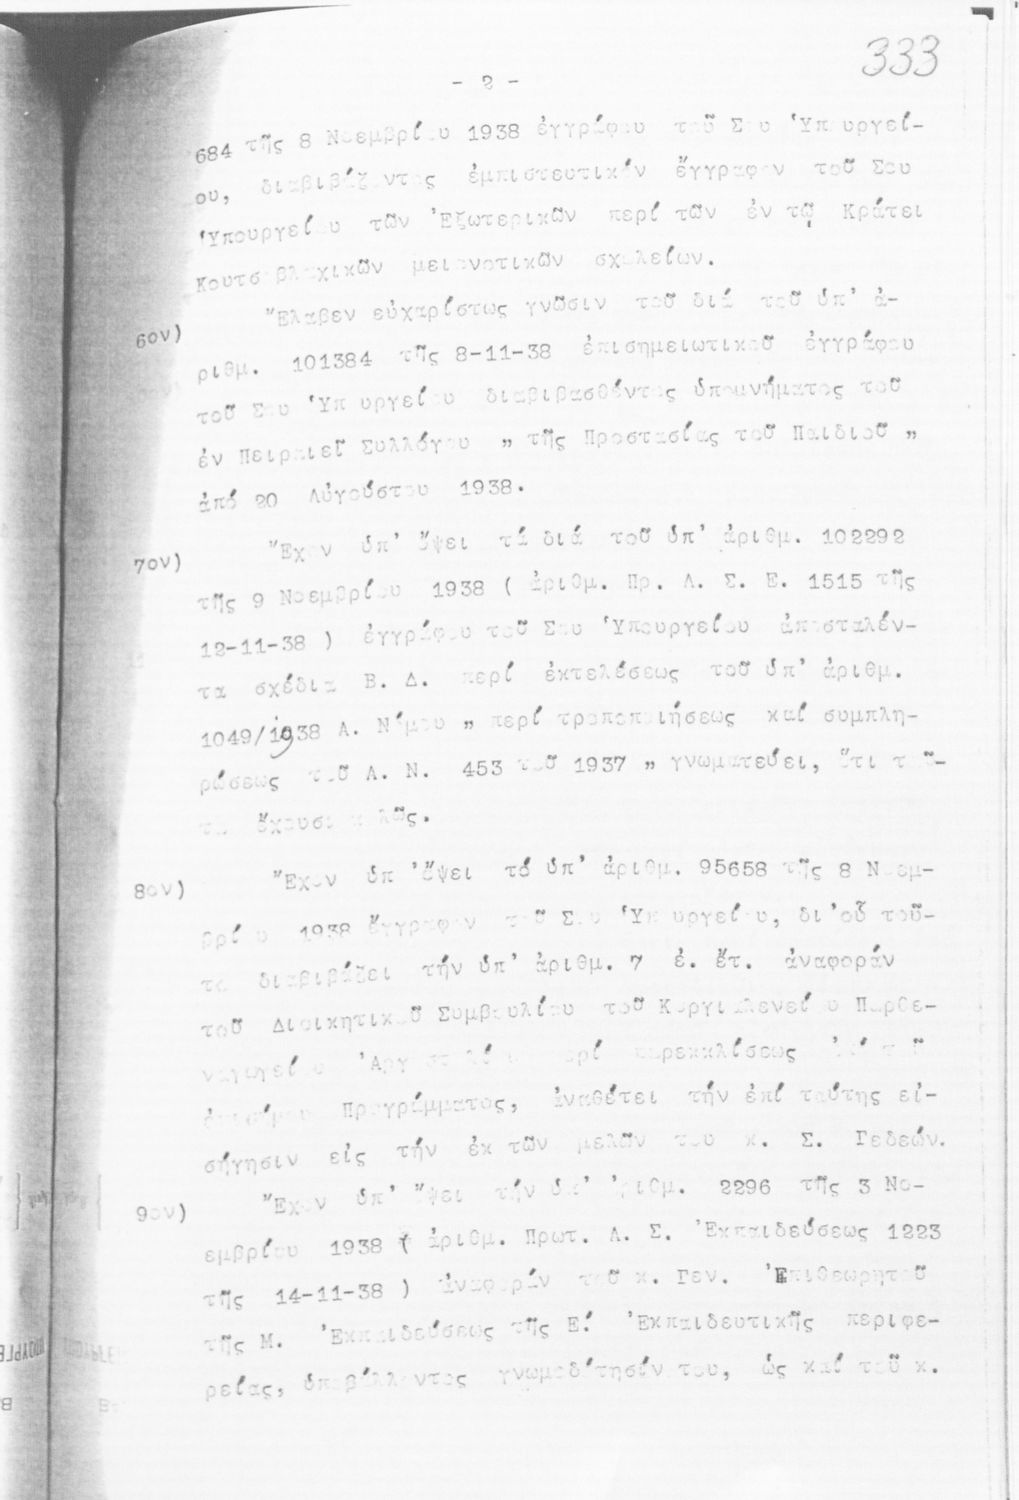 333
- 2 -
684 τῆς 8 Νοεμβρίου 1938 ἐγγράφου τοῦ Σου Ὑπουργεί-
ου, διαβιβάζοντος ἐμπιστευτικόν ἔγγραφον τοῦ Σου
Ὑπουργείου τῶν Ἐξωτερικῶν περί τῶν ἐν τῷ Κράτει
Κουτσοβλαχικῶν μειονοτικῶν σχολείων.
6ον) Ἔλαβεν εὐχαρίστως γνῶσιν τοῦ διά τοῦ ὑπ' ἀ-
ριθμ. 101384 τῆς 8-11-38 ἐπισημειωτικοῦ ἐγγράφου
τοῦ Σου Ὑπουργείου διαβιβασθέντος ὑπομνήματος τοῦ
ἐν Πειραιεῖ Συλλόγου „ τῆς Προστασίας τοῦ Παιδιοῦ „
ἀπό 20 Αὐγούστου 1938.
7ον) Ἔχον ὑπ' ὄψει τά διά τοῦ ὑπ' ἀριθμ. 102292
τῆς 9 Νοεμβρίου 1938 ( ἀριθμ. Πρ. Α. Σ. Ε. 1515 τῆς
12-11-38 ) ἐγγράφου τοῦ Σου Ὑπουργείου ἀποσταλέν-
τα σχέδια Β. Δ. περί ἐκτελέσεως τοῦ ὑπ' ἀριθμ.
1049/1938 Α. Νόμου „ περί τροποποιήσεως καί συμπλη-
ρώσεως τοῦ Α. Ν. 453 τοῦ 1937 „ γνωματεύει, ὅτι ταῦ-
τα ἔχουσι καλῶς.
8ον) Ἔχον ὑπ 'ὄψει τό ὑπ' ἀριθμ. 95658 τῆς 8 Νοεμ-
βρίου 1938 ἔγγραφον τοῦ Σου Ὑπουργείου, δι'οὗ τοῦ-
το διαβιβάζει τήν ὑπ' ἀριθμ. 7 ἐ. ἔτ. ἀναφοράν
τοῦ Διοικητικοῦ Συμβουλίου τοῦ Κοργιαλενείου Παρθε-
ναγωγείου Ἀργοστολίου περί παρεκκλίσεως ἀπό τοῦ
ἐπισήμου Προγράμματος, ἀναθέτει τήν ἐπί ταύτης εἰ-
σήγησιν εἰς τήν ἐκ τῶν μελῶν του κ. Σ. Γεδεών.
9ον) Ἔχον ὑπ' ὄψει τήν ὑπ' ἀριθμ. 2296 τῆς 3 Νο-
εμβρίου 1938 ( ἀριθμ. Πρωτ. Α. Σ. Ἐκπαιδεύσεως 1223
τῆς 14-11-38 ) ἀναφοράν τοῦ κ. Γεν. Ἐπιθεωρητοῦ
τῆς Μ. Ἐκπαιδεύσεως τῆς Ε! Ἐκπαιδευτικῆς περιφε-
ρείας, ὑποβάλλοντος γνωμοδότησίν του, ὡς καί τοῦ κ.